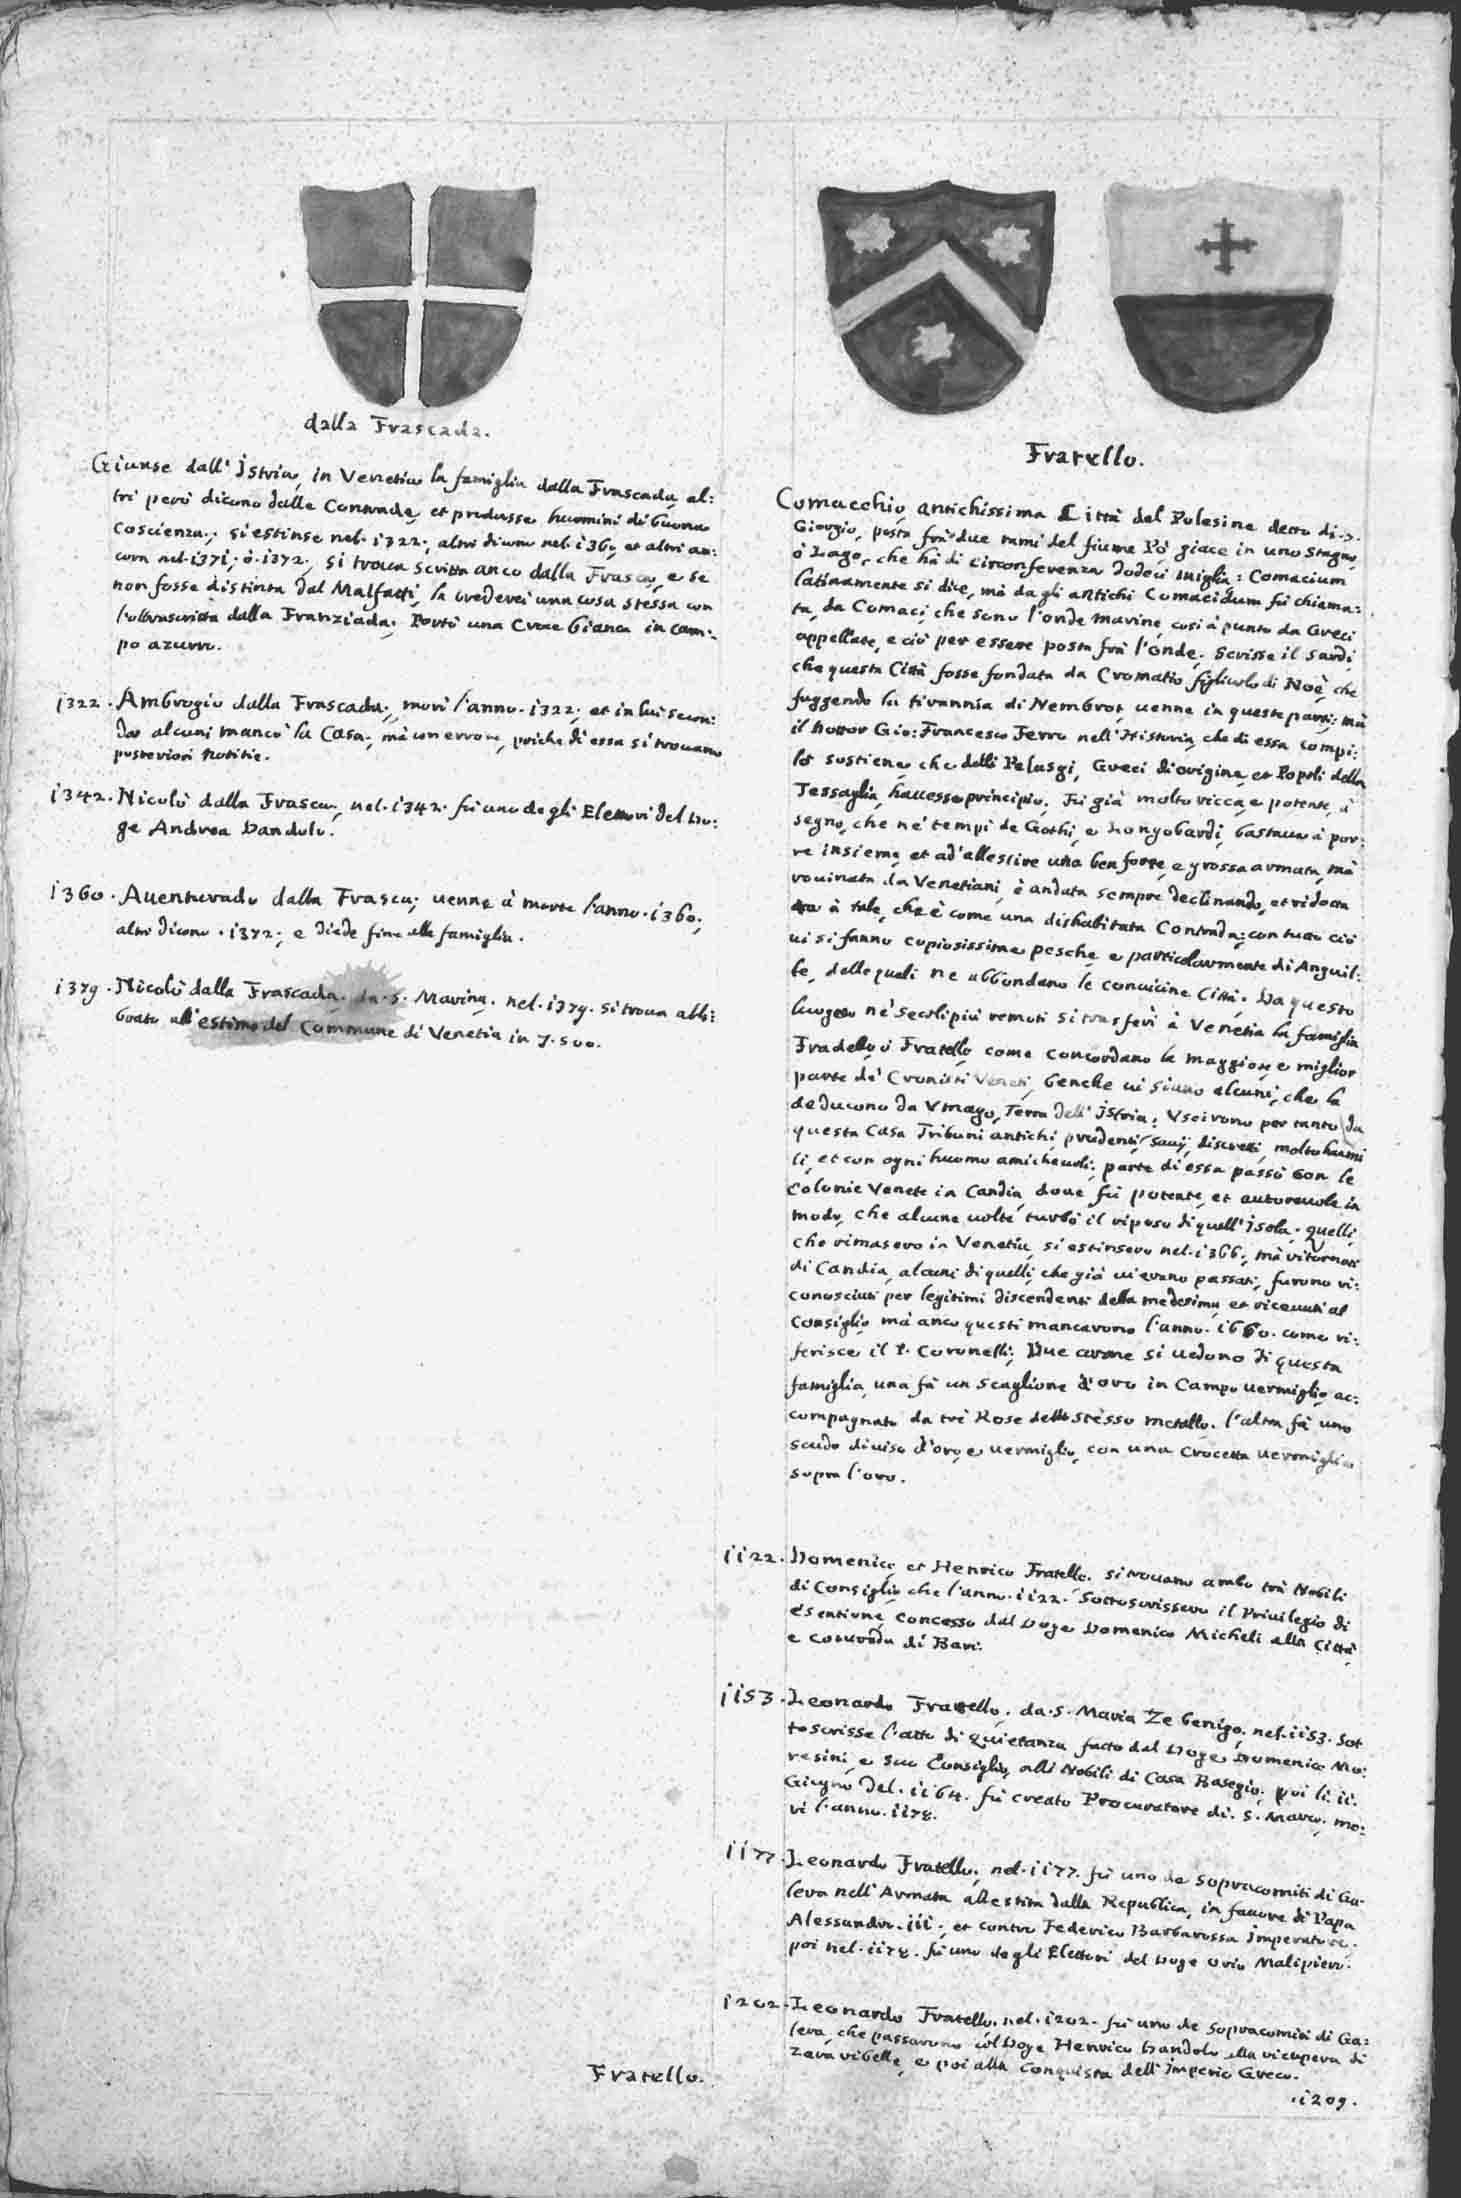 dalla Frascada.
Giunse dall' jstria, in Venetia la famiglia dalla Frascada, al:
tri però dicono dalle Contrade, et produsse huomini di buona
Coscienza; si estinse nel. i322; altri dicono nel. i360, et altri an:
cora nel. i37i; ò. i372; si troua scritta anco dalla Frasca, e se
non fosse distinta dal Malfatti, la crederei una cosa stessa con
l'oltrascritta dalla Franziada; Portò una Croce bianca in cam:
po azurro.
i322. Ambrogio dalla Frascada, morì l'anno. i322; et in lui secon:
do alcuni mancò la Casa, mà con errore, poiche di essa si trouano
posteriori notitie.
i342. Nicolò dalla Frasca, nel. i342. fù uno degli Elettori del Do:
ge Andrea Dandolo.
i360. Auenturado dalla Frasca, uenne à morte l'anno. i360;
altri dicono. i372; e diede fine alla famiglia.
i379. Nicolò dalla Frascada, da. S. Marina, nel. i379. si troua alli:
brato all' estimo del Commune di Venetia in 7.500.
Fratello.
Comacchio, antichissima Città del Polesine detto di. S.
Giorgio, posta frà due rami del fiume Pò, giace in uno stagno,
ò Lago, che hà di circonferenza dodeci miglia: Comacium
latinamente si dice, mà dagli antichi Comacidum fù chiama:
ta, da Comaci, che sono l'onde marine, così à punto da Greci
appellate, e ciò per essere posta frà l'onde. Scrisse il Sardi,
che questa Città fosse fondata da Cromatio figliuolo di Noè, che
fuggendo la tirannia di Nembrot, uenne in queste parti; mà
il Dottor Gio: Francesco Ferro nell' Historia, che di essa compi:
lò sostiene che dalli Pelasgi, Greci di origine, et Popoli della
Tessaglia, hauesse principio. Fù già molto ricca, e potente, à
segno, che ne' tempi de Gothi, e Longobardi, bastaua à por:
re insieme, et ad' allestire una ben forte, e grossa armata, mà
rouinata da Venetiani, è andata sempre declinando, et ridotta
à tale, che è come una dishabitata Contrada; con tutto ciò
ui si fanno copiosissime pesche e particolarmente di Anguil:
le, delle quali ne abbondano le conuicine Città. Da questo
luogo ne' secoli più remoti si trasferì à Venetia la famiglia
Fradello, ò Fratello, come concordano la maggiore, e miglior
parte de' Cronisti Veneti, benche ui siano alcuni, che la
deducono da Vmago, Terra dell' jstria: Vscirono per tanto da
questa Casa Tribuni antichi, prudenti, sauij, discretti, molto humi
li, et con ogni huomo amicheuoli; parte di essa passò con le
Colonie Venete in Candia, doue fù potente, et autoreuole in
modo, che alcune uolte turbò il riposo di quell' jsola. Quelli,
che rimasero in Venetia, si estinsero nel. i366; mà ritornati
di Candia, alcuni di quelli, che già ui erano passati, furono ri:
conosciuti per legitimi discendenti della medesima, et riceuuti al
Consiglio, mà anco questi mancarono l'anno. i660. come ri:
ferisce il P. Coronelli; Due arme si uedono di questa
famiglia, una fà un scaglione d'oro in Campo uermiglio, ac:
compagnato da trè Rose dello stesso metallo. l'altra fà uno
scudo diuiso d'oro, e uermiglio, con una Crocetta uermiglia
sopra l'oro.
ii22. Domenico, et Henrico Fratello. si trouano ambo trà Nobili
di Consiglio, che l'anno. ii22. Sottoscrissero il Priuilegio di
esentione, concesso dal Doge Domenico Micheli alla Città
e Contrada di Bari.
ii53. Leonardo Fratello, da. S. Maria Zebenigo, nel. ii53. Sot
toscrisse l'atto di quietanza fatto dal Doge Domenico Mo:
resini, e suo Consiglio, alli Nobili di Casa Basegio, poi li. ii.
Giugno del. ii64. fù creato Procuratore di. S. Marco, mo:
rì l'anno. ii78.
ii77. Leonardo Fratello, nel. ii77. fù uno de Sopracomiti di Ga:
lera nell' Armata allestita dalla Republica, in fauore di Papa
Alessandro. iii; et contro Federico Barbarossa jmperatore,
poi nel. ii78. fù uno degli Elettori del Doge Orio Malipiero.
i202. Leonardo Fratello, nel. i202. fù uno de Sopracomiti di Ga:
lera, che passarono col Doge Henrico Dandolo alla ricupera di
Zara ribelle, e poi alla Conquista dell' jmperio Greco.
.i209.
Fratello.